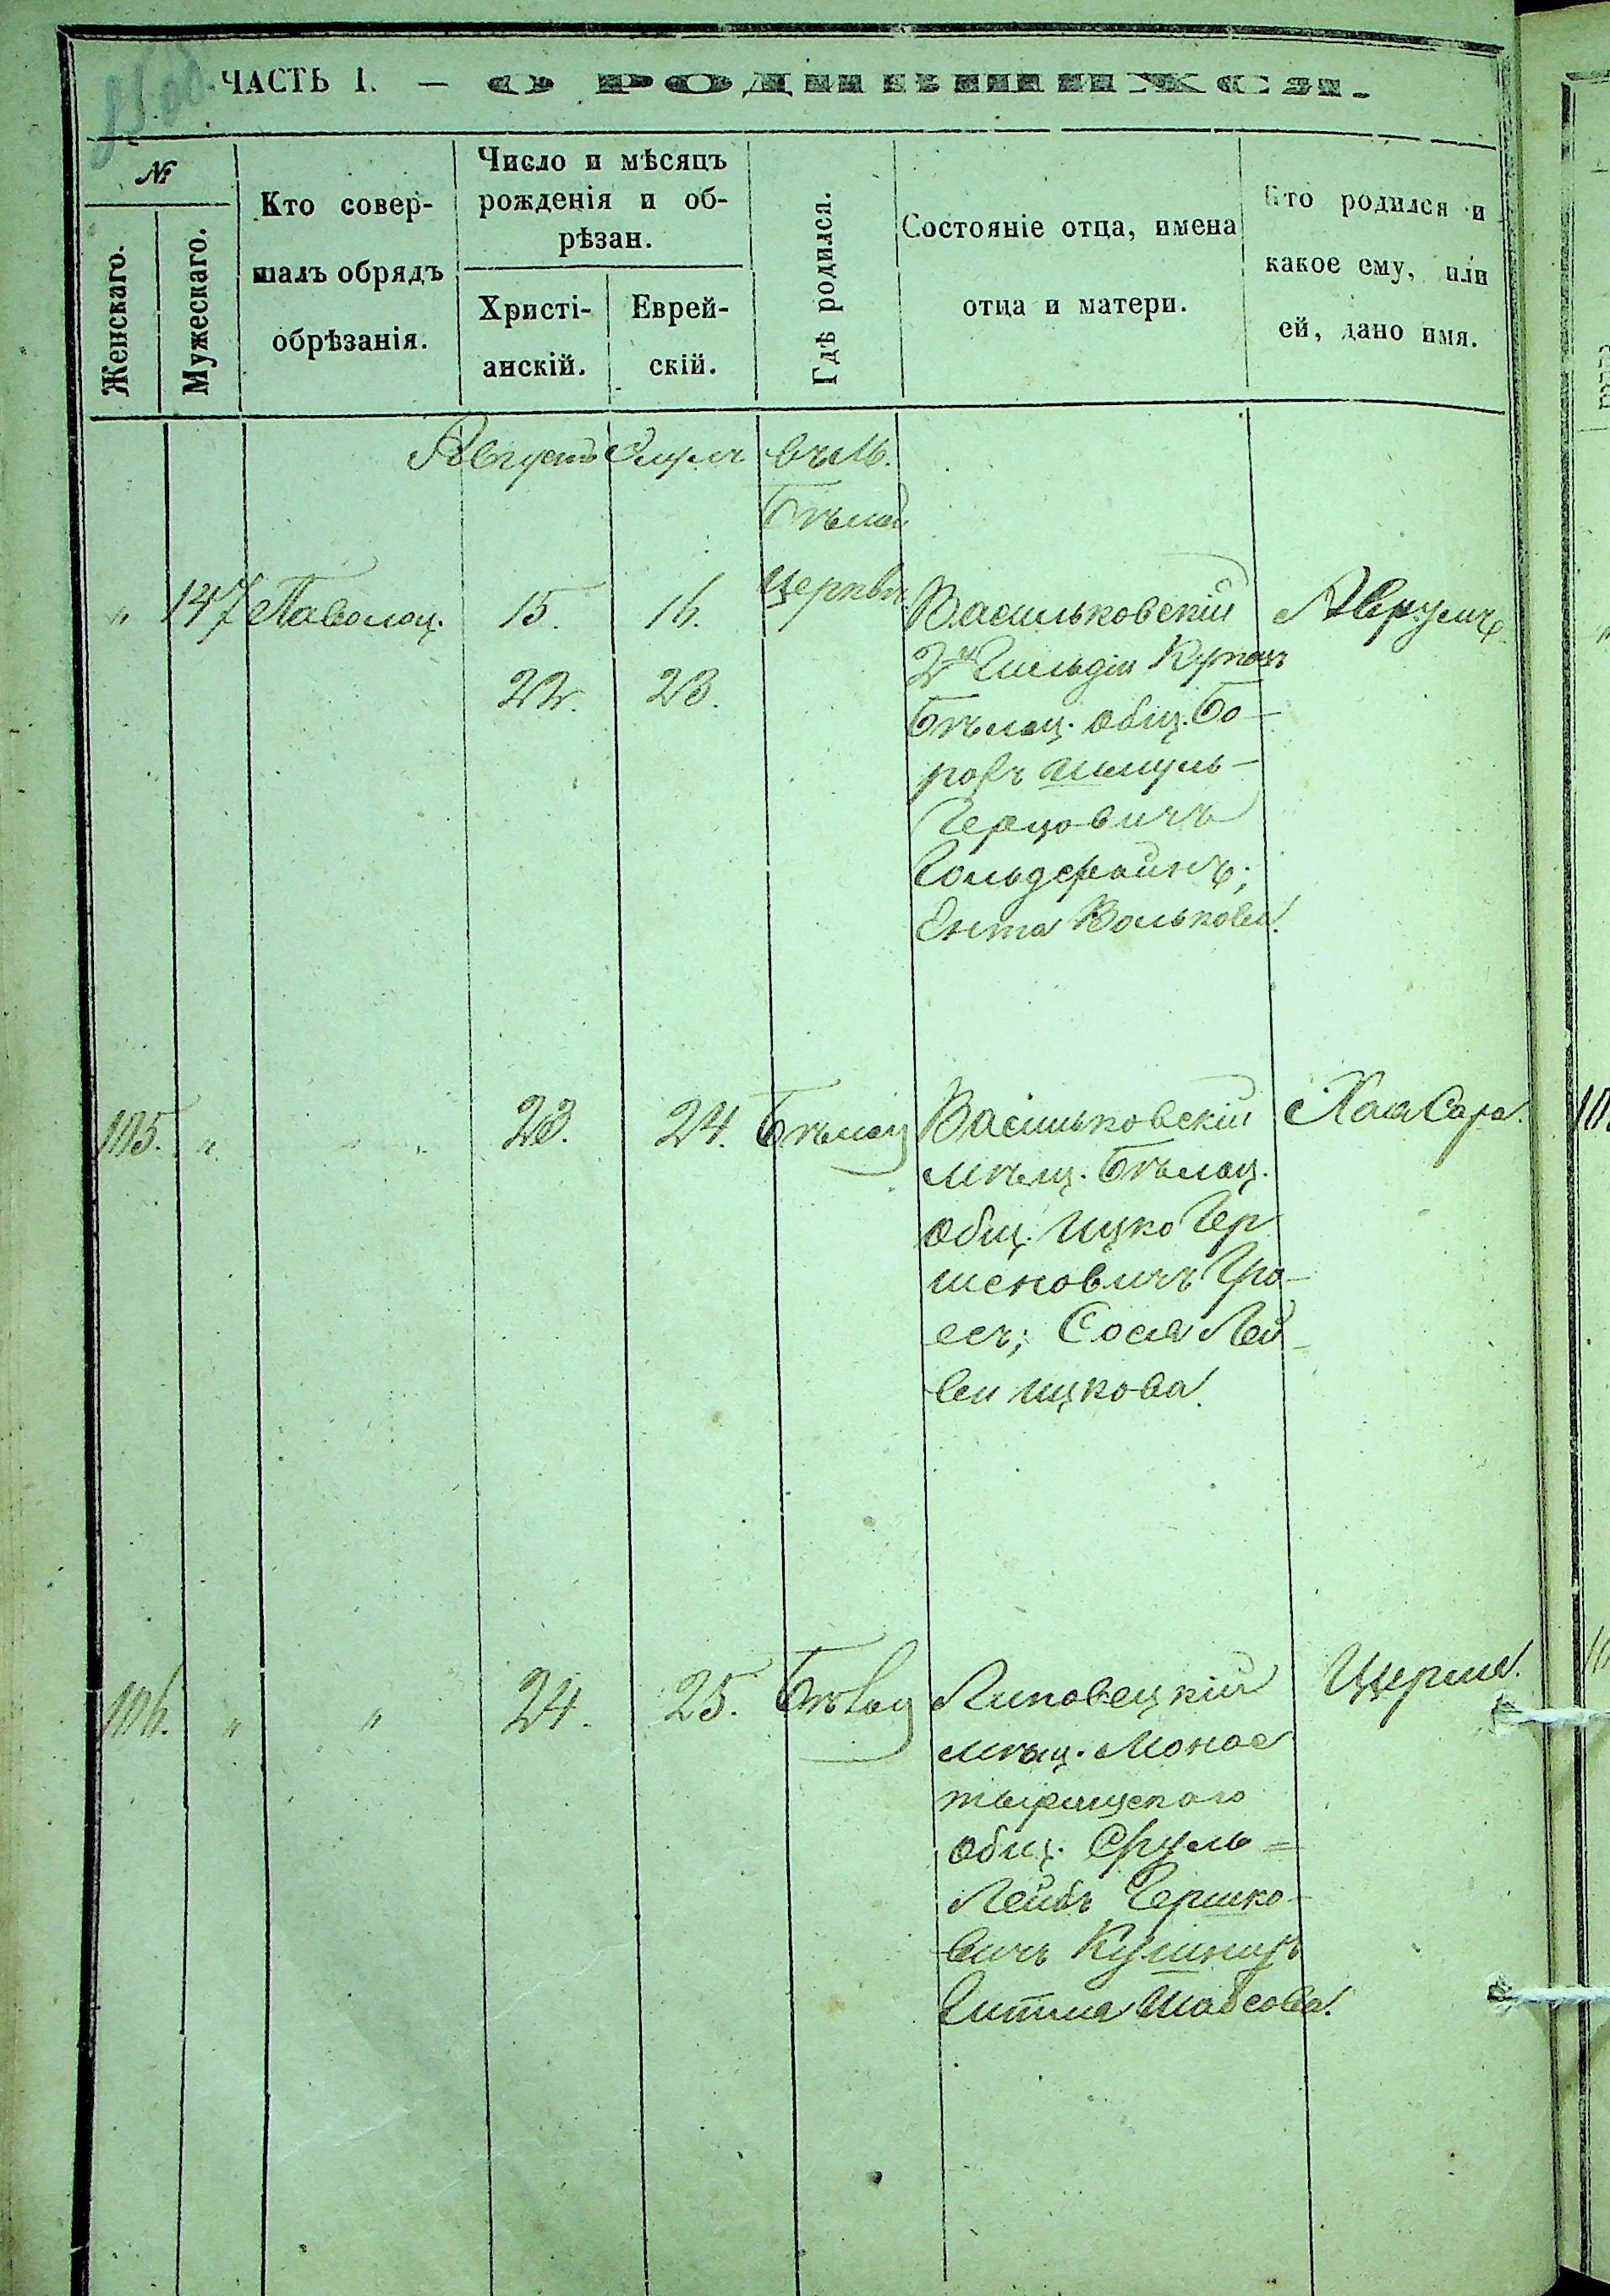 95об.
ЧАСТЬ I. — О РОДИВШИХСЯ.
№
Женскаго.
Мужескаго.
Кто совер-
шалъ обрядъ
обрѣзанія.
Число и мѣсяцъ
рожденія и об-
рѣзан.
Христі-
анскій.
Еврей-
скій.
Гдѣ родился.
Состояніе отца, имена
отца и матери.
Кто родился и
какое ему, или
ей, дано имя.
Августъ Элулъ въ М.
Бѣлой
Церкви.
" 147 Паволоц. 15. 16. Васильковскій Аврумъ
22. 23. 2й Гильдіи Купецъ
Бѣлоц. Общ. Бо-
рохъ Шмуль-
Герцовичъ
Гольдфайнъ;
Ента Волькова.
105. " " 23. 24. Бѣлоц Васильковскій Хая Сара.
мѣщ. Бѣлоц.
Общ. Ицко Гер
шковичъ
; Сося Лей-
би Ицкова.
106. " " 24. 25. Бѣлоц Липовецкій
мѣщ. Монас
тырищскаго
Общ. Сруль=
Лейбъ Гершко-
вичъ Кушниръ
Гитля Шабсова.